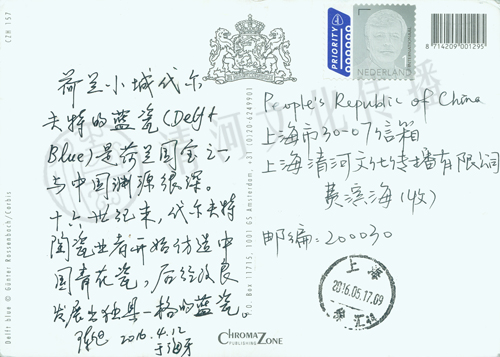 荷兰小城代尔
夫特的蓝瓷(Delft
Blue)是荷兰国宝之一
与中国渊源很深。
十六世纪末,代尔夫特
陶瓷业者开始仿造中
国青花瓷,后经改良
发展出独具一格的蓝瓷。
2016.4.12
于海牙
PRIORITY
NEDERLAND
1
INTERNATIONAL
8714209001295
People's Republic of China
上海市30-07信箱
上海清河文化传播有限公司
黄滨海(收)
邮编:200030
上海
2016.05.17.09
CZH 157
Delft blue © Günter Rossenbach/Corbis
P.O. Box 11715, 1001 GS Amsterdam, +31(0)20-6249901
CHROMAZONE
PUBLISHING
清河文化传播